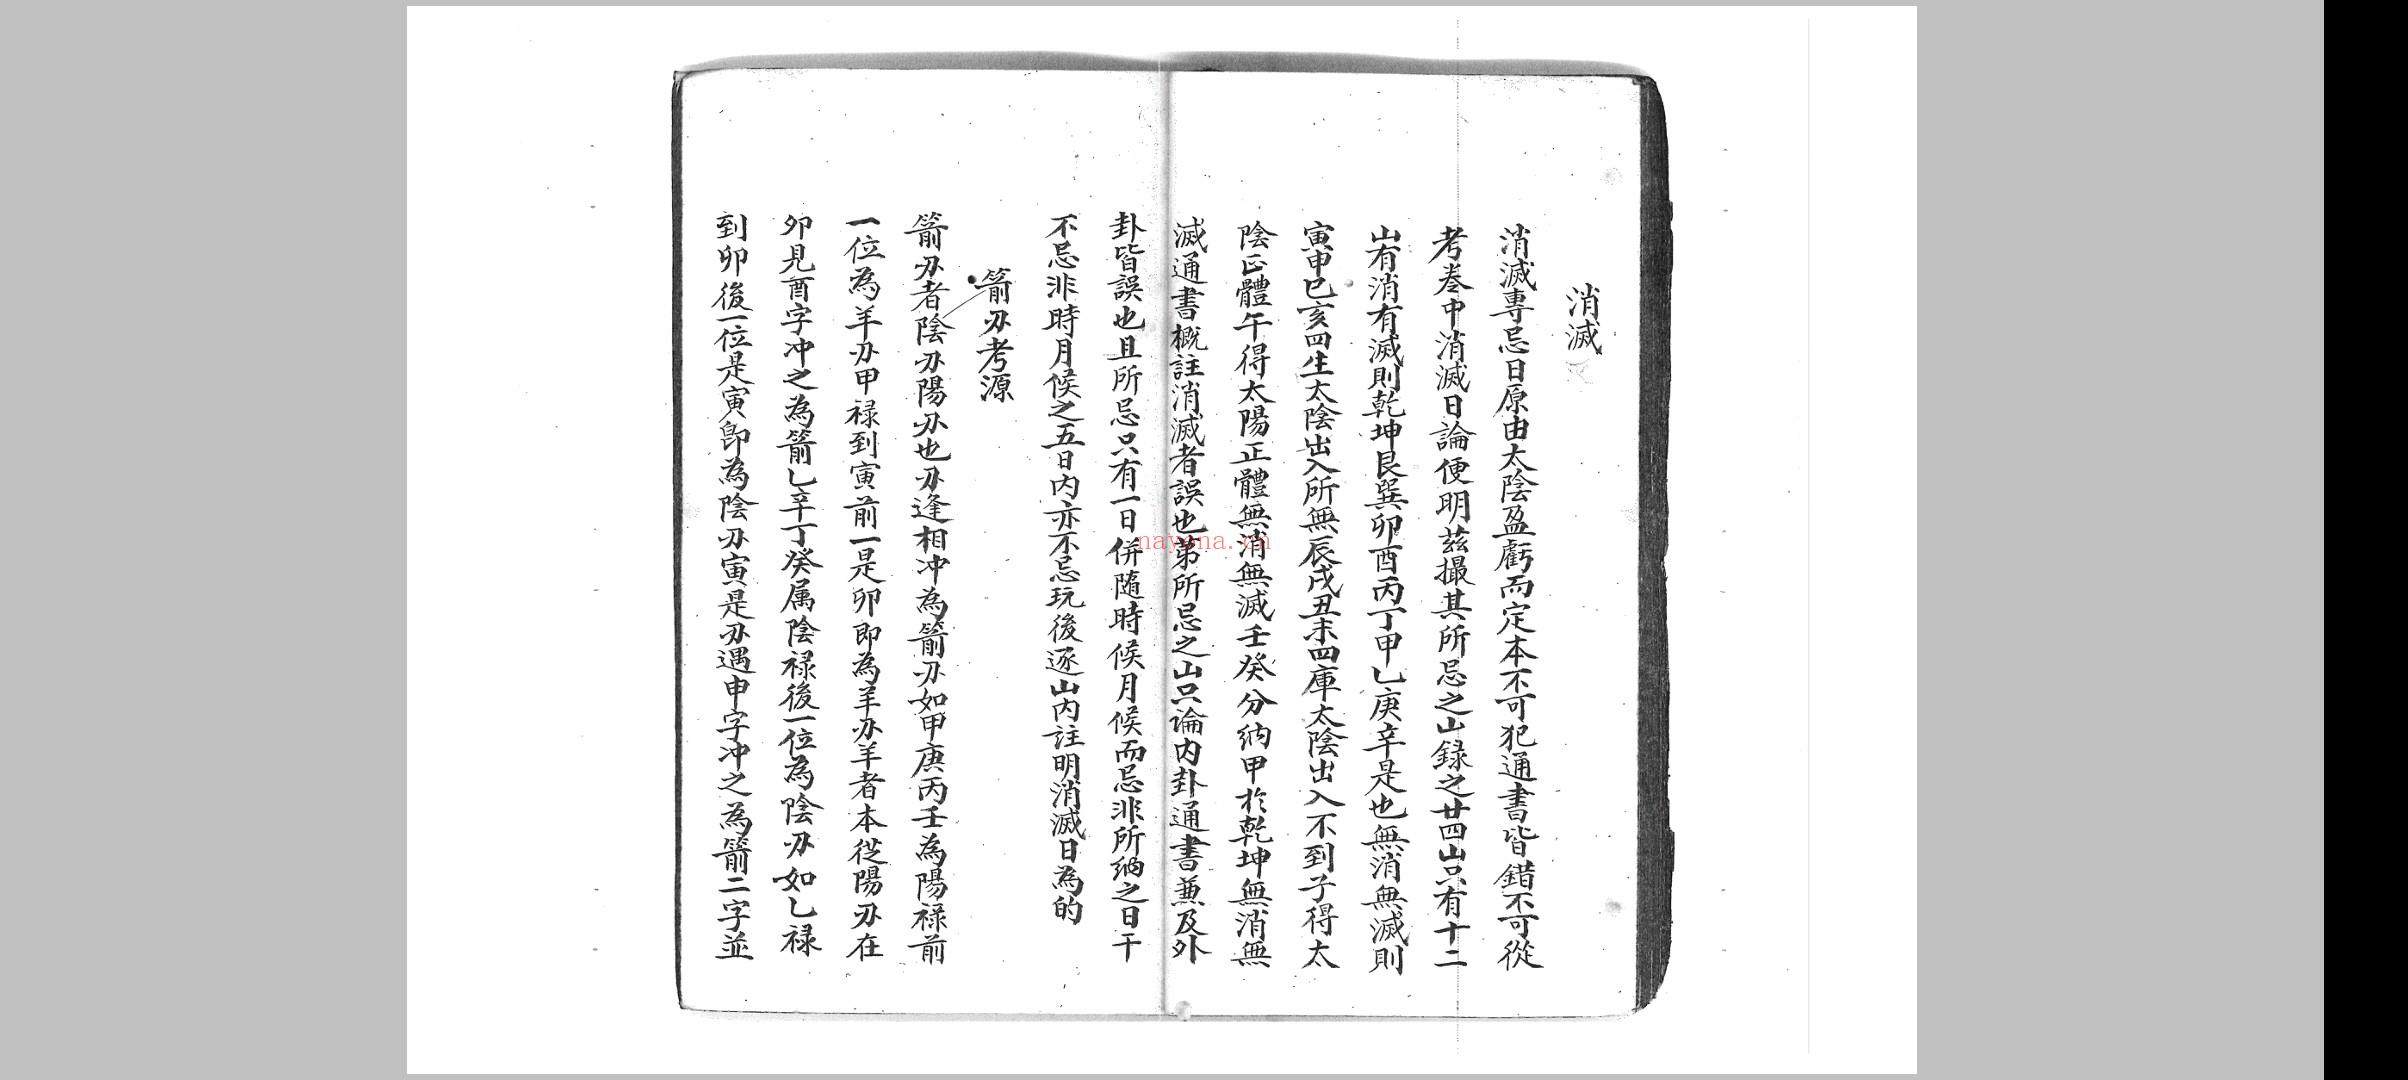 消滅
消滅專忌日原由太陰盈虧而定本不可犯通書皆錯不可從
考卷中消滅日論便明茲撮其所忌之山録之廿四山只有十二
山有消有滅則乾坤艮巽卯酉丙丁甲乙庚辛是也無消無滅則
寅申巳亥四生太陰出入所無辰戌丑未四庫太陰出入不到子得太
陰正體午得太陽正體無消無滅壬癸分納甲於乾坤無消無
滅通書概註消滅者誤也第所忌之山只論内卦通書兼及外
卦皆誤也且所忌只有一日併随時候月候而忌非所納之日干
不忌非時月候之五日内亦不忌玩後逐山内註明消滅日為的
箭刃考源
箭刃者陰刃陽刃也刃逢相冲為箭刃如甲庚丙壬為陽禄前
一位為羊刃甲禄到寅前一是卯即為羊刃羊者本從陽刃在
卯見酉字冲之為箭乙辛丁癸属陰禄後一位為陰刃如乙禄
到卯後一位是寅即為陰刃寅是刃遇申字冲之為箭二字並
nayona.cn